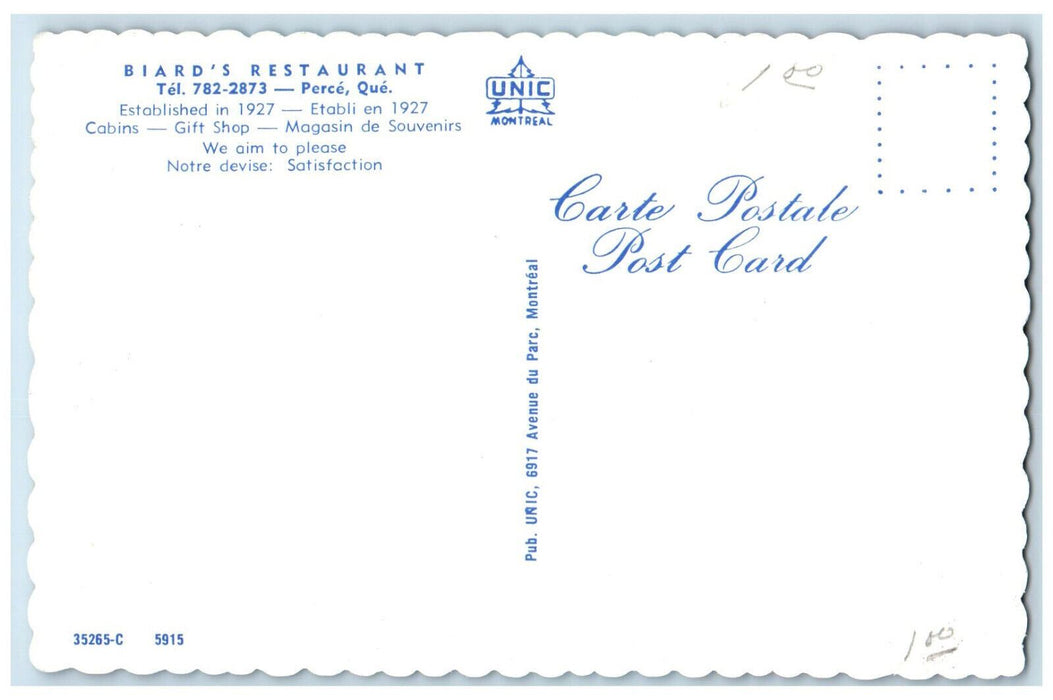 BIARD'S RESTAURANT
Tél. 782-2873 — Percé, Qué.
Established in 1927 — Etabli en 1927
Cabins — Gift Shop — Magasin de Souvenirs
We aim to please
Notre devise: Satisfaction
UNIC
MONTREAL
1 00
Carte Postale
Post Card
Pub. UNIC, 6917 Avenue du Parc, Montréal
35265-C 5915
1 00